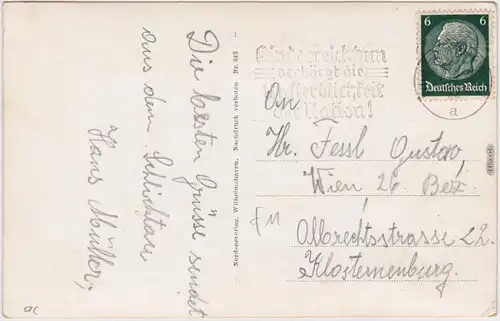 Die besten Grüsse sendet
aus dem Schlicktau
Hans Müller,
Norderverlag, Wilhelmshaven. Nachdruck verboten Nr. 342
Kinderreichtum
verbürgt die
Unsterblichkeit
der Nation!
6 6
Deutsches Reich
a
An
Hr. Fessl Gustav,
Wien 26. Bez.
Albrechtsstrasse
Klosterneuburg.